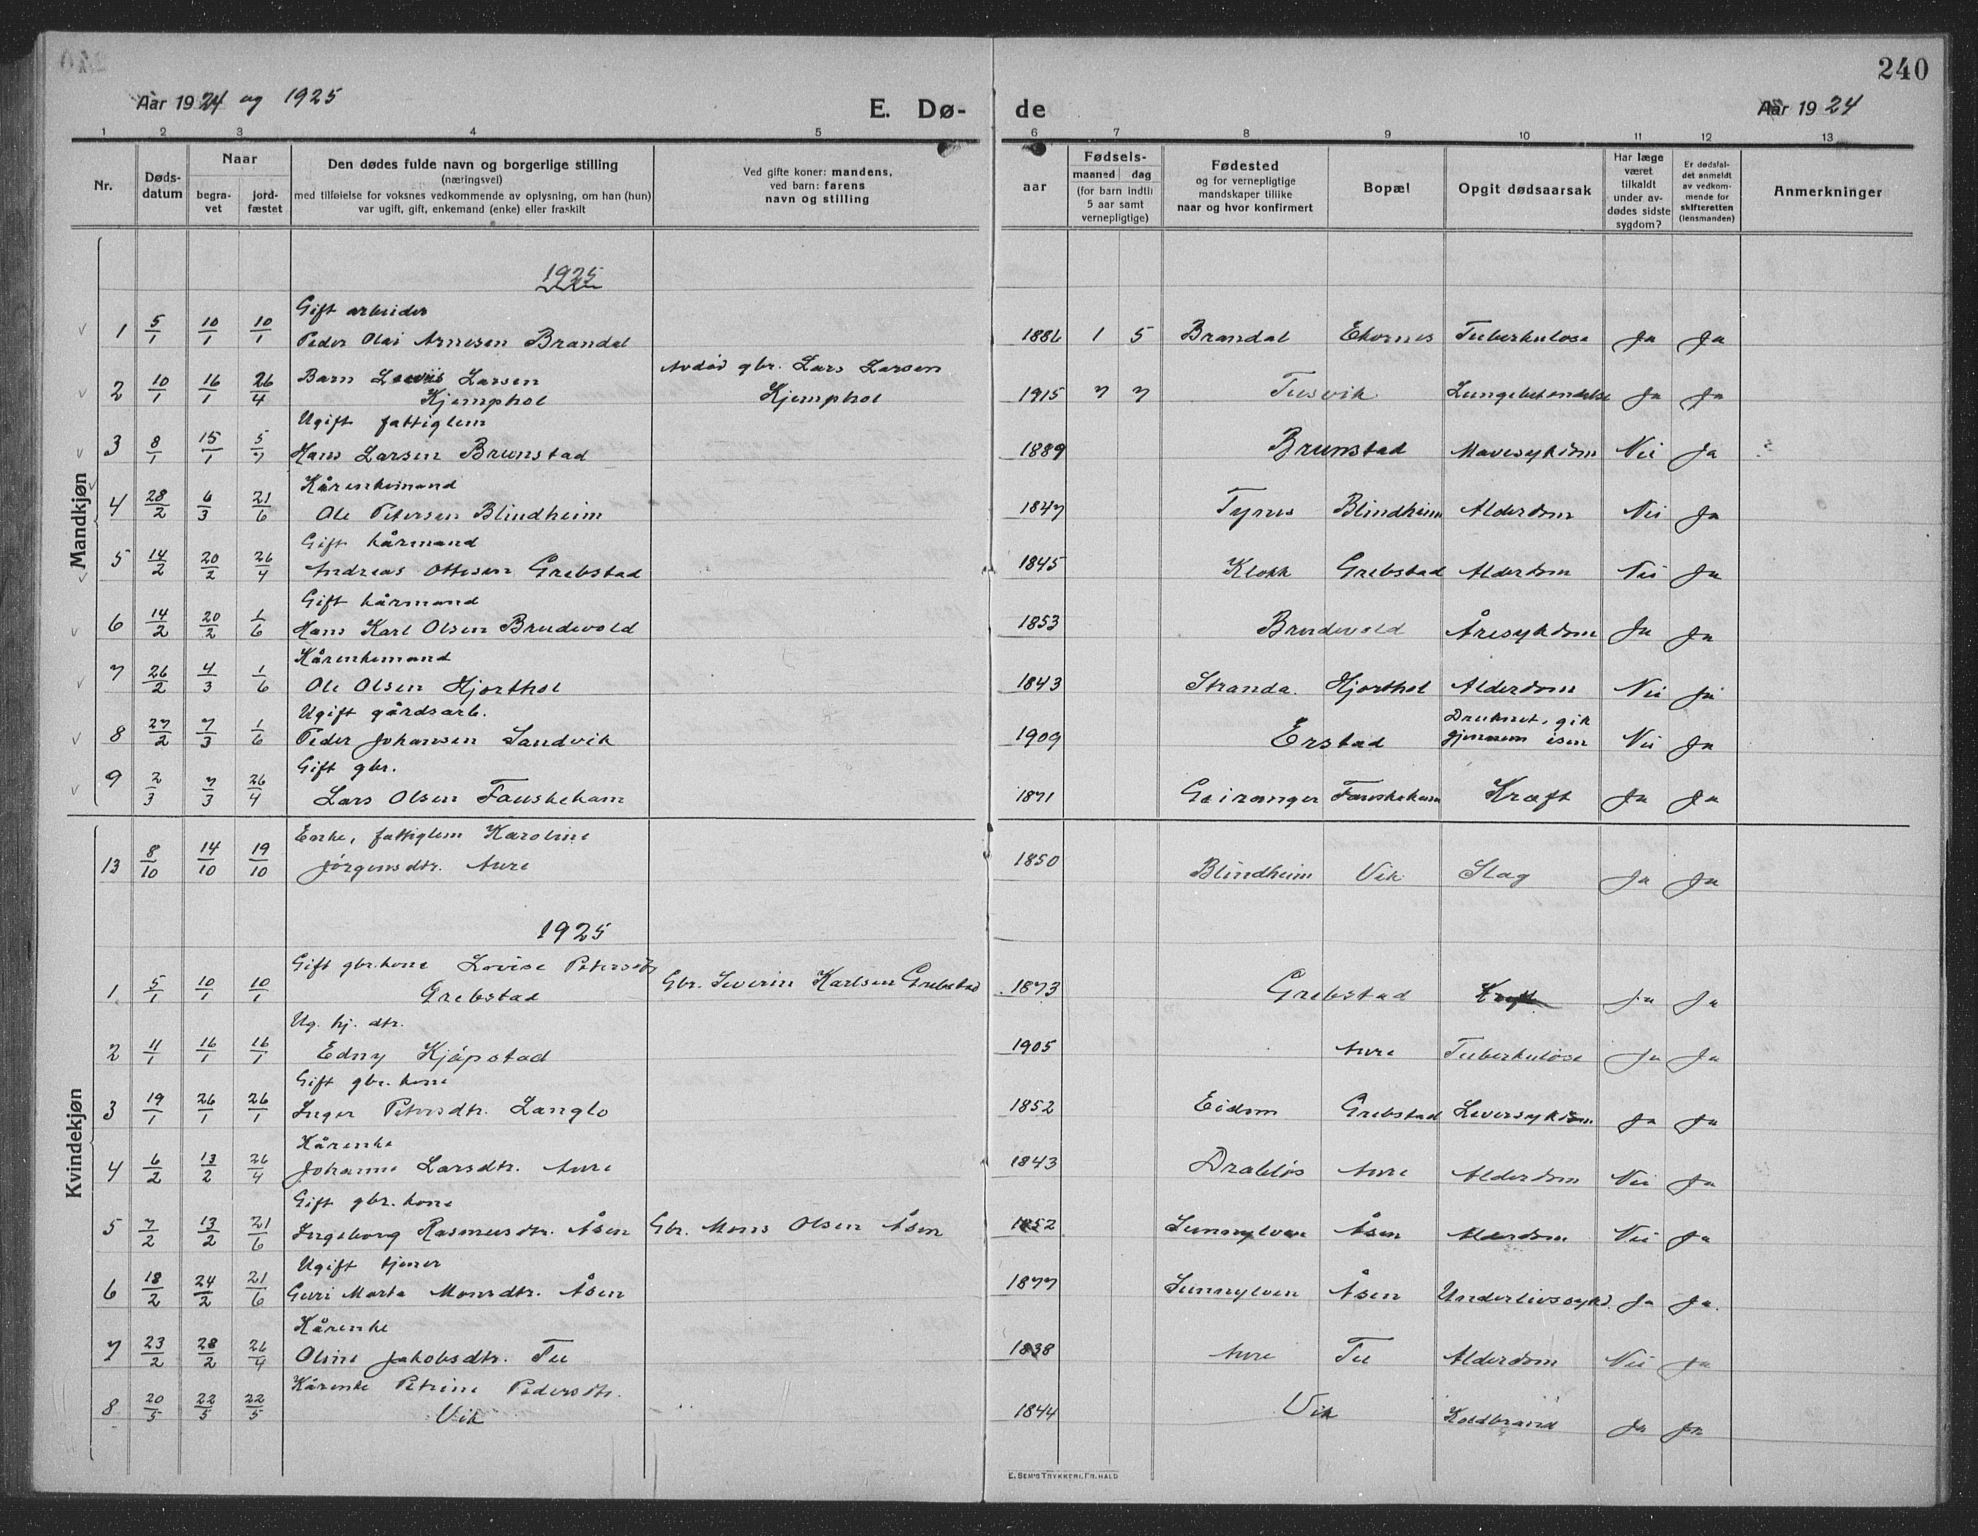 240
Aar 1924 og 1925 E. Dø- de Aar 1924
1 2 3 4 5 6 7 8 9 10 11 12 13
Nr. Døds-datum Naar begra-vet jord-fæstet
Den dødes fulde navn og borgerlige stilling (næringsvei) med tilføielse for voksnes vedkommende av oplysning, om han (hun) var ugift, gift, enkemand (enke) eller fraskilt
Ved gifte koner: mandens, ved barn: farens navn og stilling
Fødsels- aar maaned dag (for barn indtil 5 aar samt vernepligtige)
Fødested og for vernepligtige mandskaper tillike naar og hvor konfirmert
Bopæl
Opgit dødsaarsak
Har læge været tilkaldt under av-dødes sidste sygdom?
Er dødsfal-det anmeldt av vedkom-mende for skifteretten (lensmanden)
Anmerkninger
Mandkjøn
1925
Gift arbeider
1 5/1 10/1 10/1 Peder Olai Arnesen Brandal 1886 1 5 Brandal Ekornes Tuberkulose Ja Ja
Barn Larsen Avdød gbr. Lars Larsen
2 10/1 16/1 26/4 Kjemphol Kjemphol 1915 7 7 Tusvik Lungebetændelse Ja Ja
Ugift fattiglem
3 8/1 15/1 5/7 Hans Larsen Brunstad 1889 Brunstad Mavesykdom Nei Ja
Kårenkemand
4 28/2 6/3 21/6 Ole Petersen Blindheim 1847 Tynes Blindheim Alderdom Nei Ja
Gift kårmand
5 14/2 20/2 26/4 Andreas Ottesen Grebstad 1845 Klokk Grebstad Alderdom Nei Ja
Gift kårmand
6 14/2 20/2 1/6 Hans Karl Olsen Brudevold 1853 Brudevold Åresykdom Ja Ja
Kårenkemand
7 26/2 4/3 1/6 Ole Olsen Hjorthol 1843 Stranda. Hjorthol Alderdom Nei Ja
Ugift gårdsarb. Druknet, gik
8 27/2 7/3 1/6 Peder Johansen Sandvik 1909 Erstad gjennem isen Nei Ja
Gift gbr.
9 2/3 7/3 26/4 Lars Olsen Fauskeham 1871 Geiranger Fauskeham Kræft Ja Ja
Enke, fattiglem Karoline
13 8/10 14/10 19/10 Jørgensdtr. Aure 1850 Blindheim Vik Slag Ja Ja
Kvindekjøn
1925
Gift gbr.kone Lovise Petersdtr
1 5/1 10/1 10/1 Grebstad Gbr. Severin Karlsen Grebstad 1873 Grebstad Kræft Ja Ja
Ug. hj. dtr.
2 11/1 16/1 16/1 Edny Kjøpstad 1905 Aure Tuberkulose Ja Ja
Gift gbr. kone
3 19/1 26/1 26/1 Inger Petersdtr. Langlo 1852 Eidem Grebstad Leversykdom Ja Ja
Kårenke
4 6/2 13/2 26/4 Johanne Larsdtr. Aure 1843 Drabløs Aure Alderdom Nei Ja
Gift gbr. kone
5 7/2 13/2 21/6 Ingeborg Rasmusdtr. Åsen Gbr. Mons Olsen Åsen 1852 Sunnylven Åsen Alderdom Nei Ja
Ugift tjener
6 18/2 24/2 21/6 Guri Marta Monsdtr. Åsen 1877 Sunnylven Åsen Underlivssykd. Ja Ja.
Kårenke
7 23/2 28/2 26/4 Oline Jakobsdtr. Tu 1838 Aure Tu Alderdom Nei Ja
Kårenke Petrine Pedersdtr.
8 20/5 22/5 22/5 Vik 1844 Vik Koldbrand Ja Ja
E. SEM'S TRYKKERI, FR.HALD